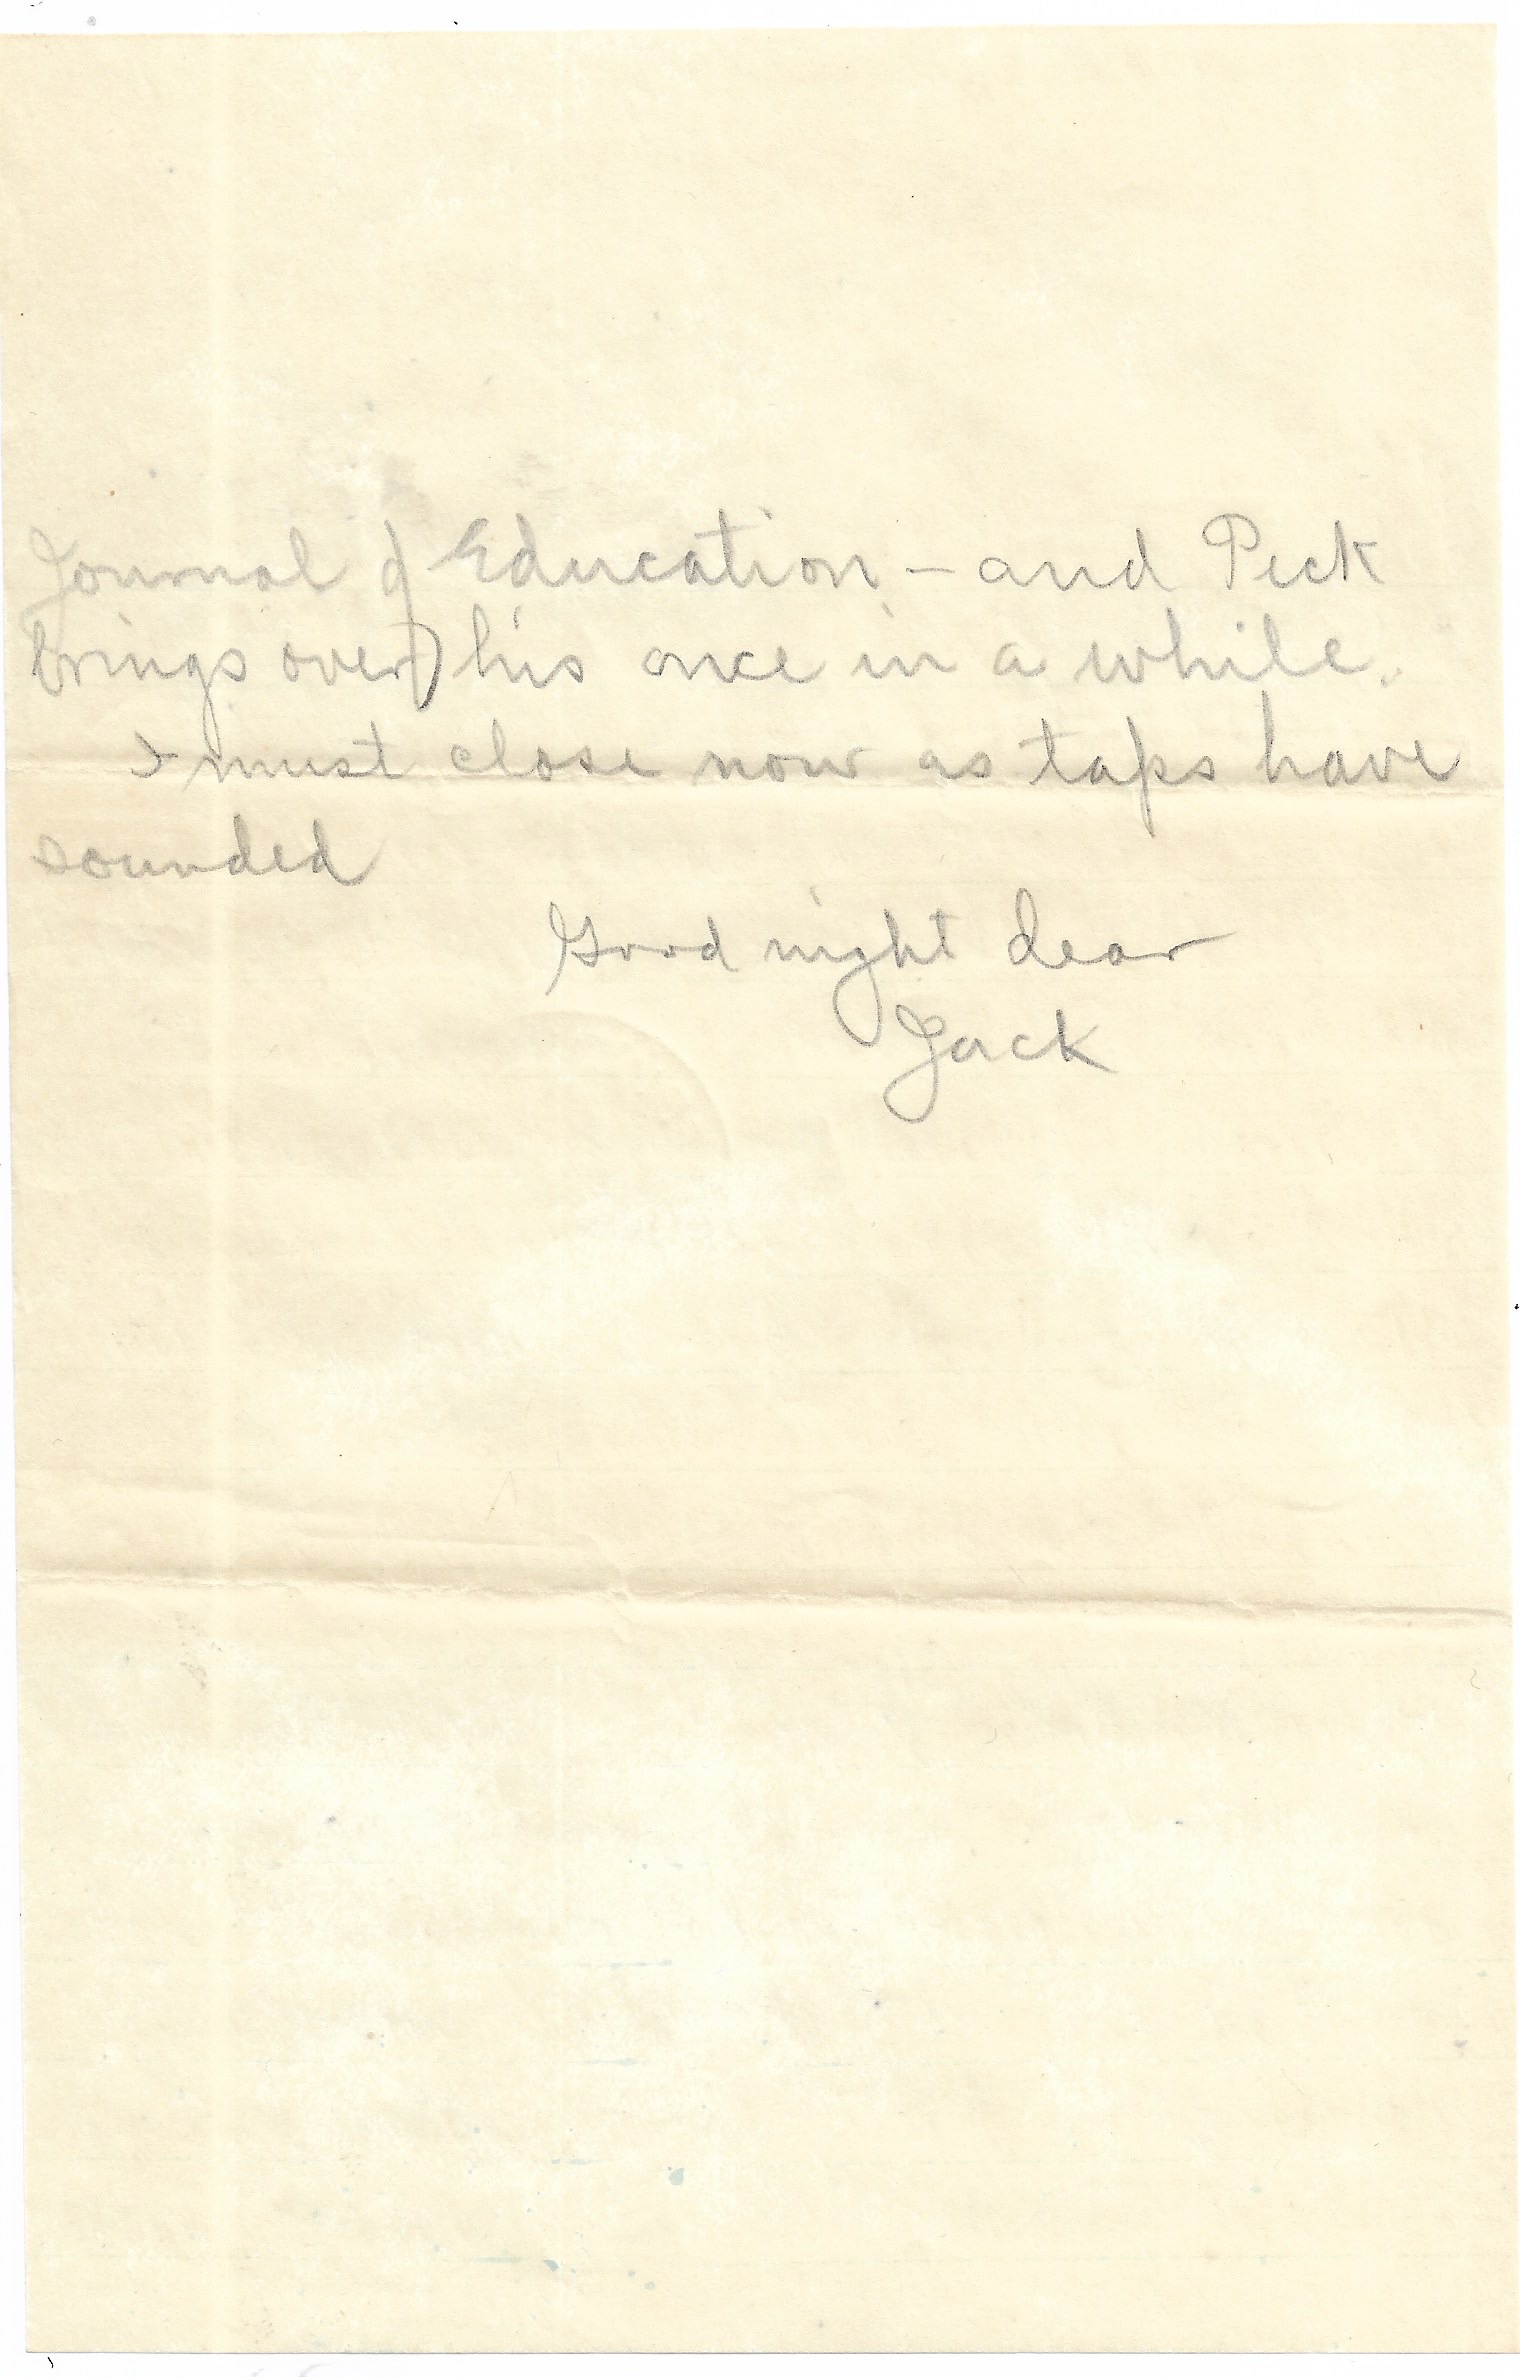 Journal of Education - and Peck
brings over his once in a while.
I must close now as taps have
sounded
Good night dear
Jack